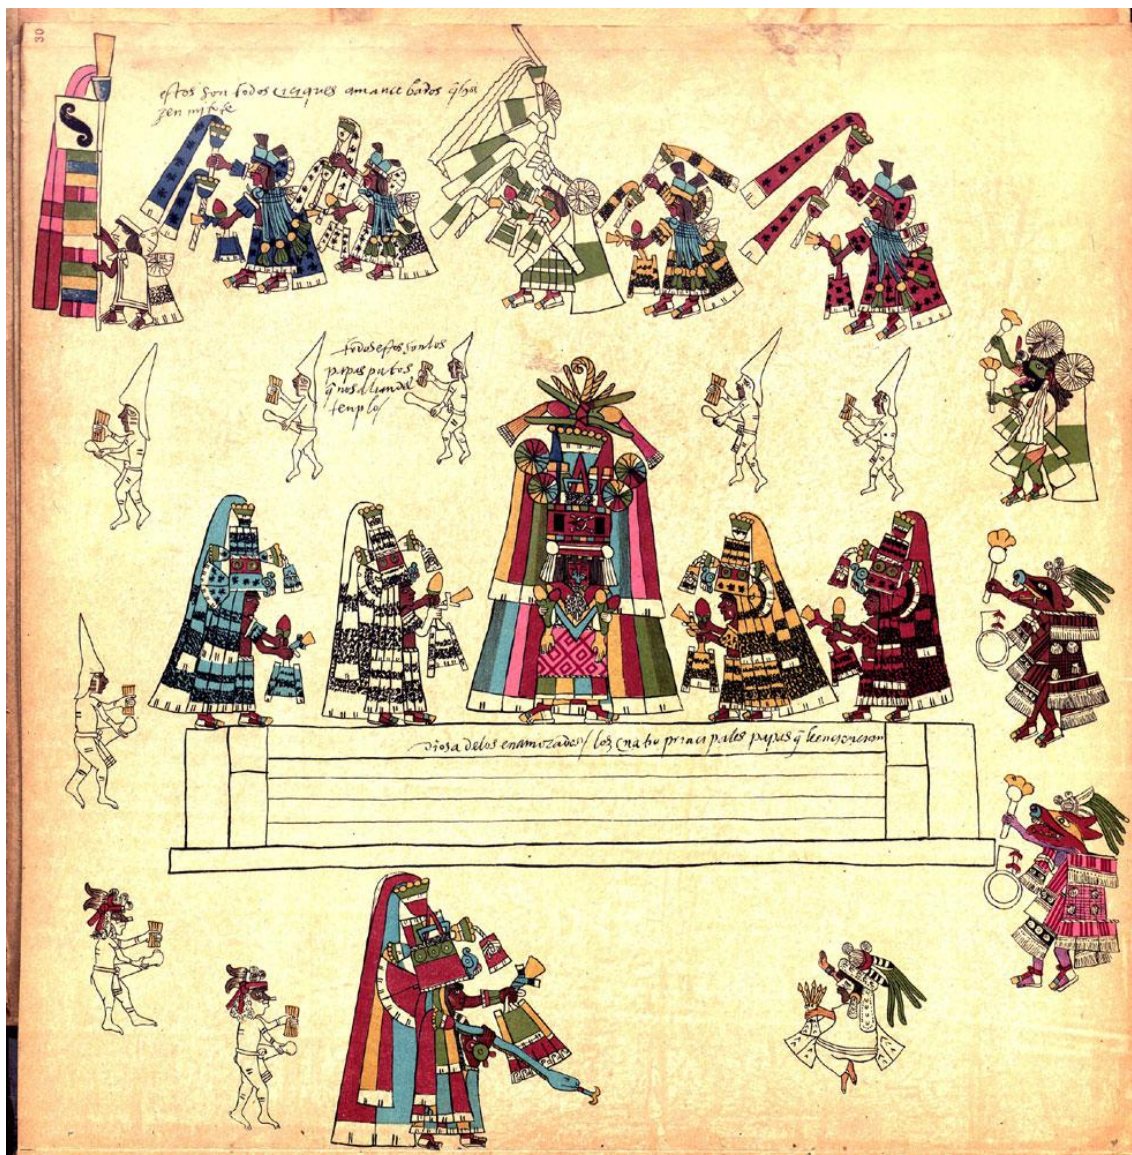 30
estos son todos caciques amancebados q̃ ha
zen mitote
todos estos son los
papas putos
q̃ no salian del
templo/
diosa delos enamorados / los quatro principales papas q̃